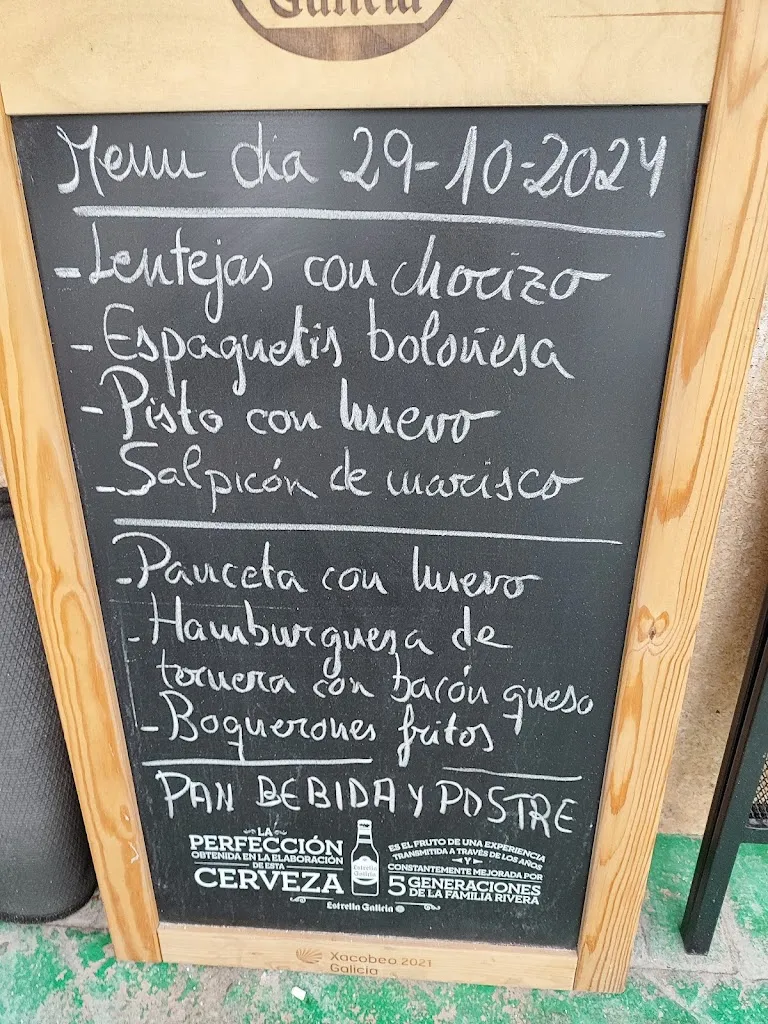 Galicia
Menu dia 29-10-2024
- Lentejas con chorizo
- Espaguetis boloñesa
- Pisto con huevo
- Salpicón de marisco
- Panceta con huevo
- Hamburguesa de
ternera con bacón queso
- Boquerones fritos
PAN BEBIDA Y POSTRE
LA
PERFECCIÓN
OBTENIDA EN LA ELABORACIÓN
DE ESTA
CERVEZA
Estrella
Galicia
ES EL FRUTO DE UNA EXPERIENCIA
TRANSMITIDA A TRAVÉS DE LOS AÑOS
Y
CONSTANTEMENTE MEJORADA POR
5 GENERACIONES
DE LA FAMILIA RIVERA
Estrella Galicia
Xacobeo 2021
Galicia